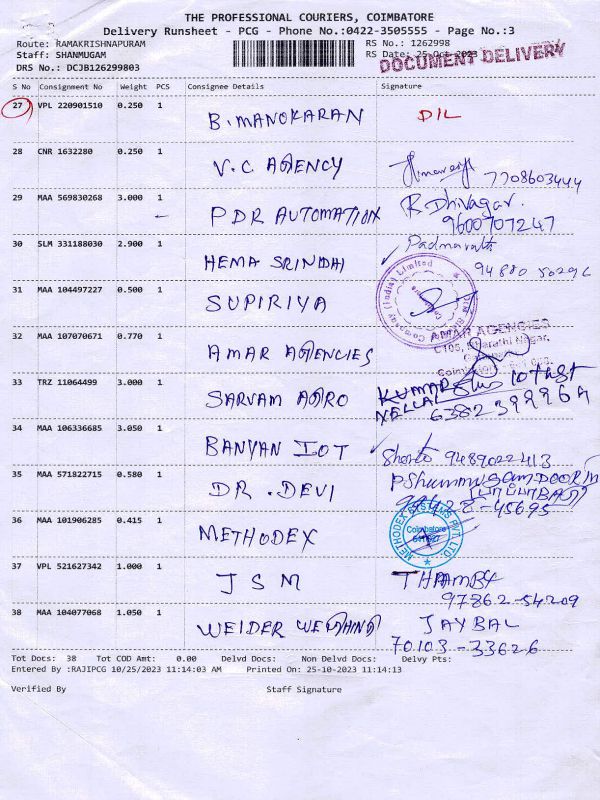 THE PROFESSIONAL COURIERS, COIMBATORE
Delivery Runsheet - PCG - Phone No.:0422-3505555 - Page No.:3
Route: RAMAKRISHNAPURAM RS No.: 1262998
Staff: SHANMUGAM RS Date: 25 Oct 2023
DOCUMENT DELIVERY
DRS No.: DCJB126299803
S No Consignment No Weight PCS Consignee Details Signature
27 VPL 220901510 0.250 1 B. MANOKARAN DIL
28 CNR 1632280 0.250 1 V.C. AGENCY 7708603444
29 MAA 569830268 3.000 1 PDR AUTOMATION R. Dhivagar.
9600707247
30 SLM 331188030 2.900 1 HEMA SRINDHI Padmavathi
94880
31 MAA 104497227 0.500 1 SUPIRIYA
Company (India) Limited
32 MAA 107070671 0.770 1 AMAR AGENCIES AMAR AGENCIES
C105, Bharathi Nagar,
33 TRZ 11064499 3.000 1 SARVAM AGRO KUMAR
NELLAI
34 MAA 106336685 3.050 1 BANYAN IOT 9489022413
35 MAA 571822715 0.580 1 DR. DEVI
45695
36 MAA 101906285 0.415 1 METHODEX METHODEX SYSTEMS PVT. LTD.
Coimbatore
37 VPL 521627342 1.000 1 JSM THAMBY
97862-54209
38 MAA 104077068 1.050 1 WEIDER JAYBAL
70103-33626
Tot Docs: 38 Tot COD Amt: 0.00 Delvd Docs: Non Delvd Docs: Delvy Pts:
Entered By :RAJIPCG 10/25/2023 11:14:03 AM Printed On: 25-10-2023 11:14:13
Verified By Staff Signature